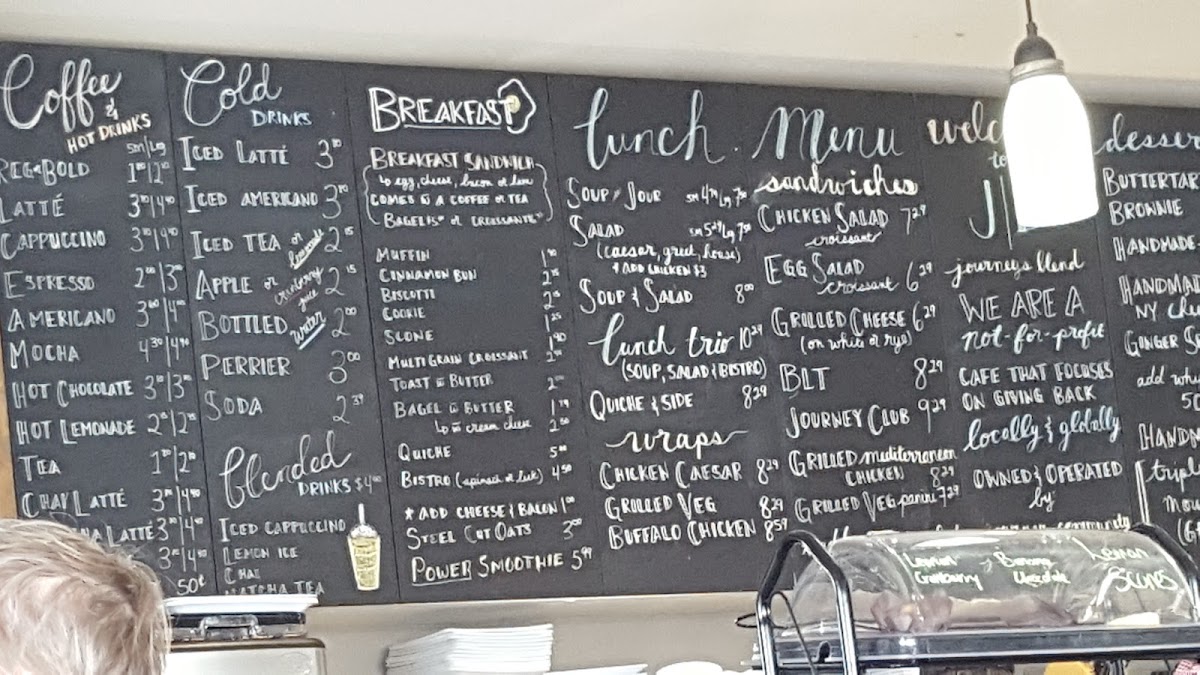 Coffee
&
HOT DRINKS
sm|Lg
REG & BOLD
LATTÉ
CAPPUCCINO
ESPRESSO
AMERICANO
MOCHA 4.30|4.90
HOT CHOCOLATE
HOT LEMONADE
TEA
CHAI LATTÉ
LATTÉ
50¢
Cold
DRINKS
ICED LATTÉ
ICED AMERICANO
ICED TEA or lemonade 2.15
APPLE or cranberry juice 2.15
BOTTLED water 2.00
PERRIER 3.00
SODA 2.39
blended
DRINKS
ICED CAPPUCCINO
LEMON ICE
CHAI
MATCHA TEA
BREAKFAST
BREAKFAST SANDWICH
egg, cheese, bacon or ham
COMES W A COFFEE or TEA
BAGEL or CROISSANT
MUFFIN
CINNAMON BUN
BISCOTTI
COOKIE 1.25
SCONE
MULTIGRAIN CROISSANT
TOAST W BUTTER
BAGEL W BUTTER
W cream cheese
QUICHE
BISTRO (spinach or leek) 4.50
* ADD CHEESE & BACON 1.00
STEEL CUT OATS 3.00
POWER SMOOTHIE 5.99
lunch Menu
SOUP DU JOUR
SALAD
(caesar, greek, house)
+ ADD CHICKEN $3
SOUP & SALAD 8.00
lunch trio 10.29
(SOUP, SALAD & BISTRO)
QUICHE & SIDE 8.29
wraps
CHICKEN CAESAR 8.29
GRILLED VEG 8.29
BUFFALO CHICKEN 8.59
sandwiches
CHICKEN SALAD 7.29
croissant
EGG SALAD
croissant 6.29
GRILLED CHEESE 6.29
(on white or rye)
BLT 8.29
JOURNEY CLUB 9.29
GRILLED mediterranean
CHICKEN 8.29
GRILLED VEG panini 7.29
welc
to
J
journeys blend
WE ARE A
not-for-profit
CAFE THAT FOCUSES
ON GIVING BACK
locally & globally
OWNED & OPERATED
by
community
desser
BUTTERTAR
BROWNIE
HANDMADE
HANDMAD
NY che
GINGER S
add wh
50
HANDM
tripl
Mo
(G
Lemon
Cranberry
Banana
Chocolate
Lemon
Scones